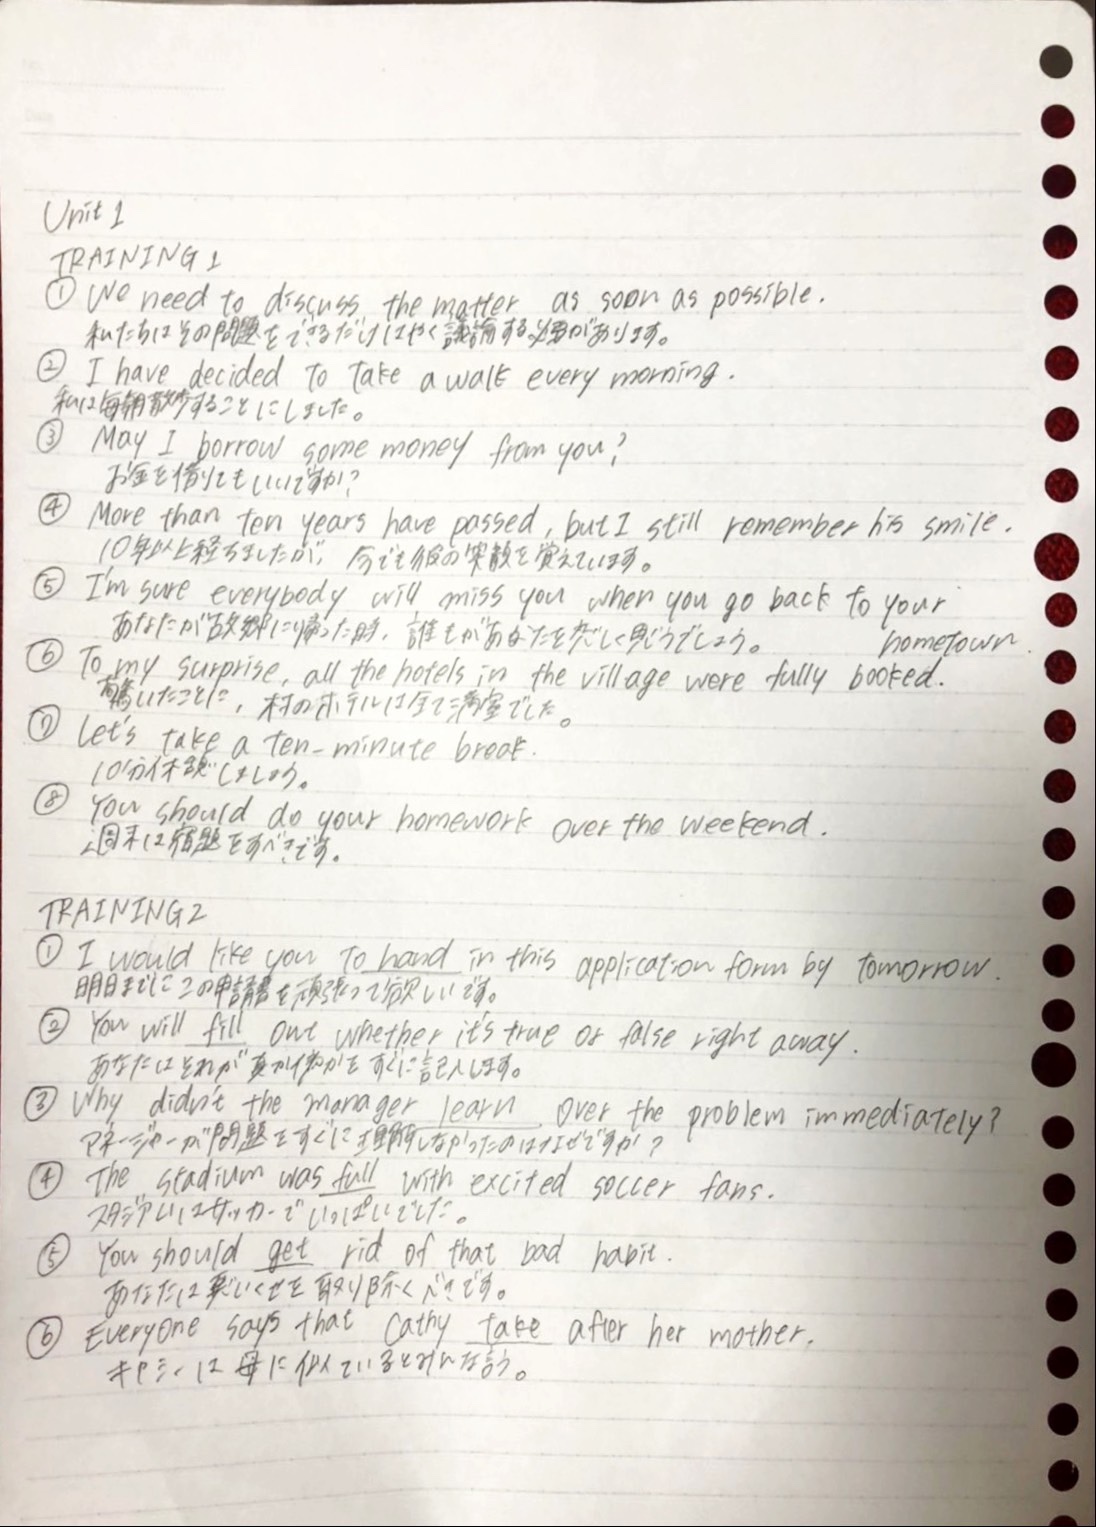 Unit 1
TRAINING 1
① We need to discuss the matter as soon as possible.
私たちはその問題をできるだけはやく議論する必要があります。
② I have decided to take a walk every morning.
私は毎朝散歩することにしました。
③ May I borrow some money from you?
お金を借りてもいいですか?
④ More than ten years have passed, but I still remember his smile.
10年以上経ちましたが、今でも彼の笑顔を覚えています。
⑤ I'm sure everybody will miss you when you go back to your
hometown.
あなたが故郷に帰った時、誰もがあなたを恋しく思うでしょう。
⑥ To my surprise, all the hotels in the village were fully booked.
驚いたことに、村のホテルは全て満室でした。
⑦ Let's take a ten-minute break.
10分休憩しましょう。
⑧ You should do your homework over the weekend.
週末は宿題をすべきです。
TRAINING 2
① I would like you to hand in this application form by tomorrow.
明日までにこの申請書を頑張って欲しいです。
② You will fill out whether it's true or false right away.
あなたはそれが真か偽かをすぐに記入します。
③ Why didn't the manager learn over the problem immediately?
マネージャーが問題をすぐに理解しなかったのはなぜですか?
④ The stadium was full with excited soccer fans.
スタジアムはサッカーでいっぱいでした。
⑤ You should get rid of that bad habit.
あなたは悪いくせを取り除くべきです。
⑥ Everyone says that Cathy take after her mother.
キャシーは母に似ているとみんな言う。